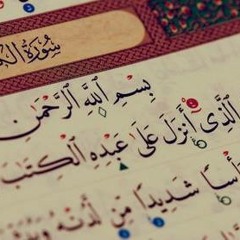 سُورَةُ
بِسْمِ ٱللَّهِ ٱلرَّحْمَٰنِ
ٱلَّذِىٓ أَنزَلَ عَلَىٰ عَبْدِهِ ٱلْكِتَٰبَ
أْسًا شَدِيدًا مِّن لَّدُنْهُ